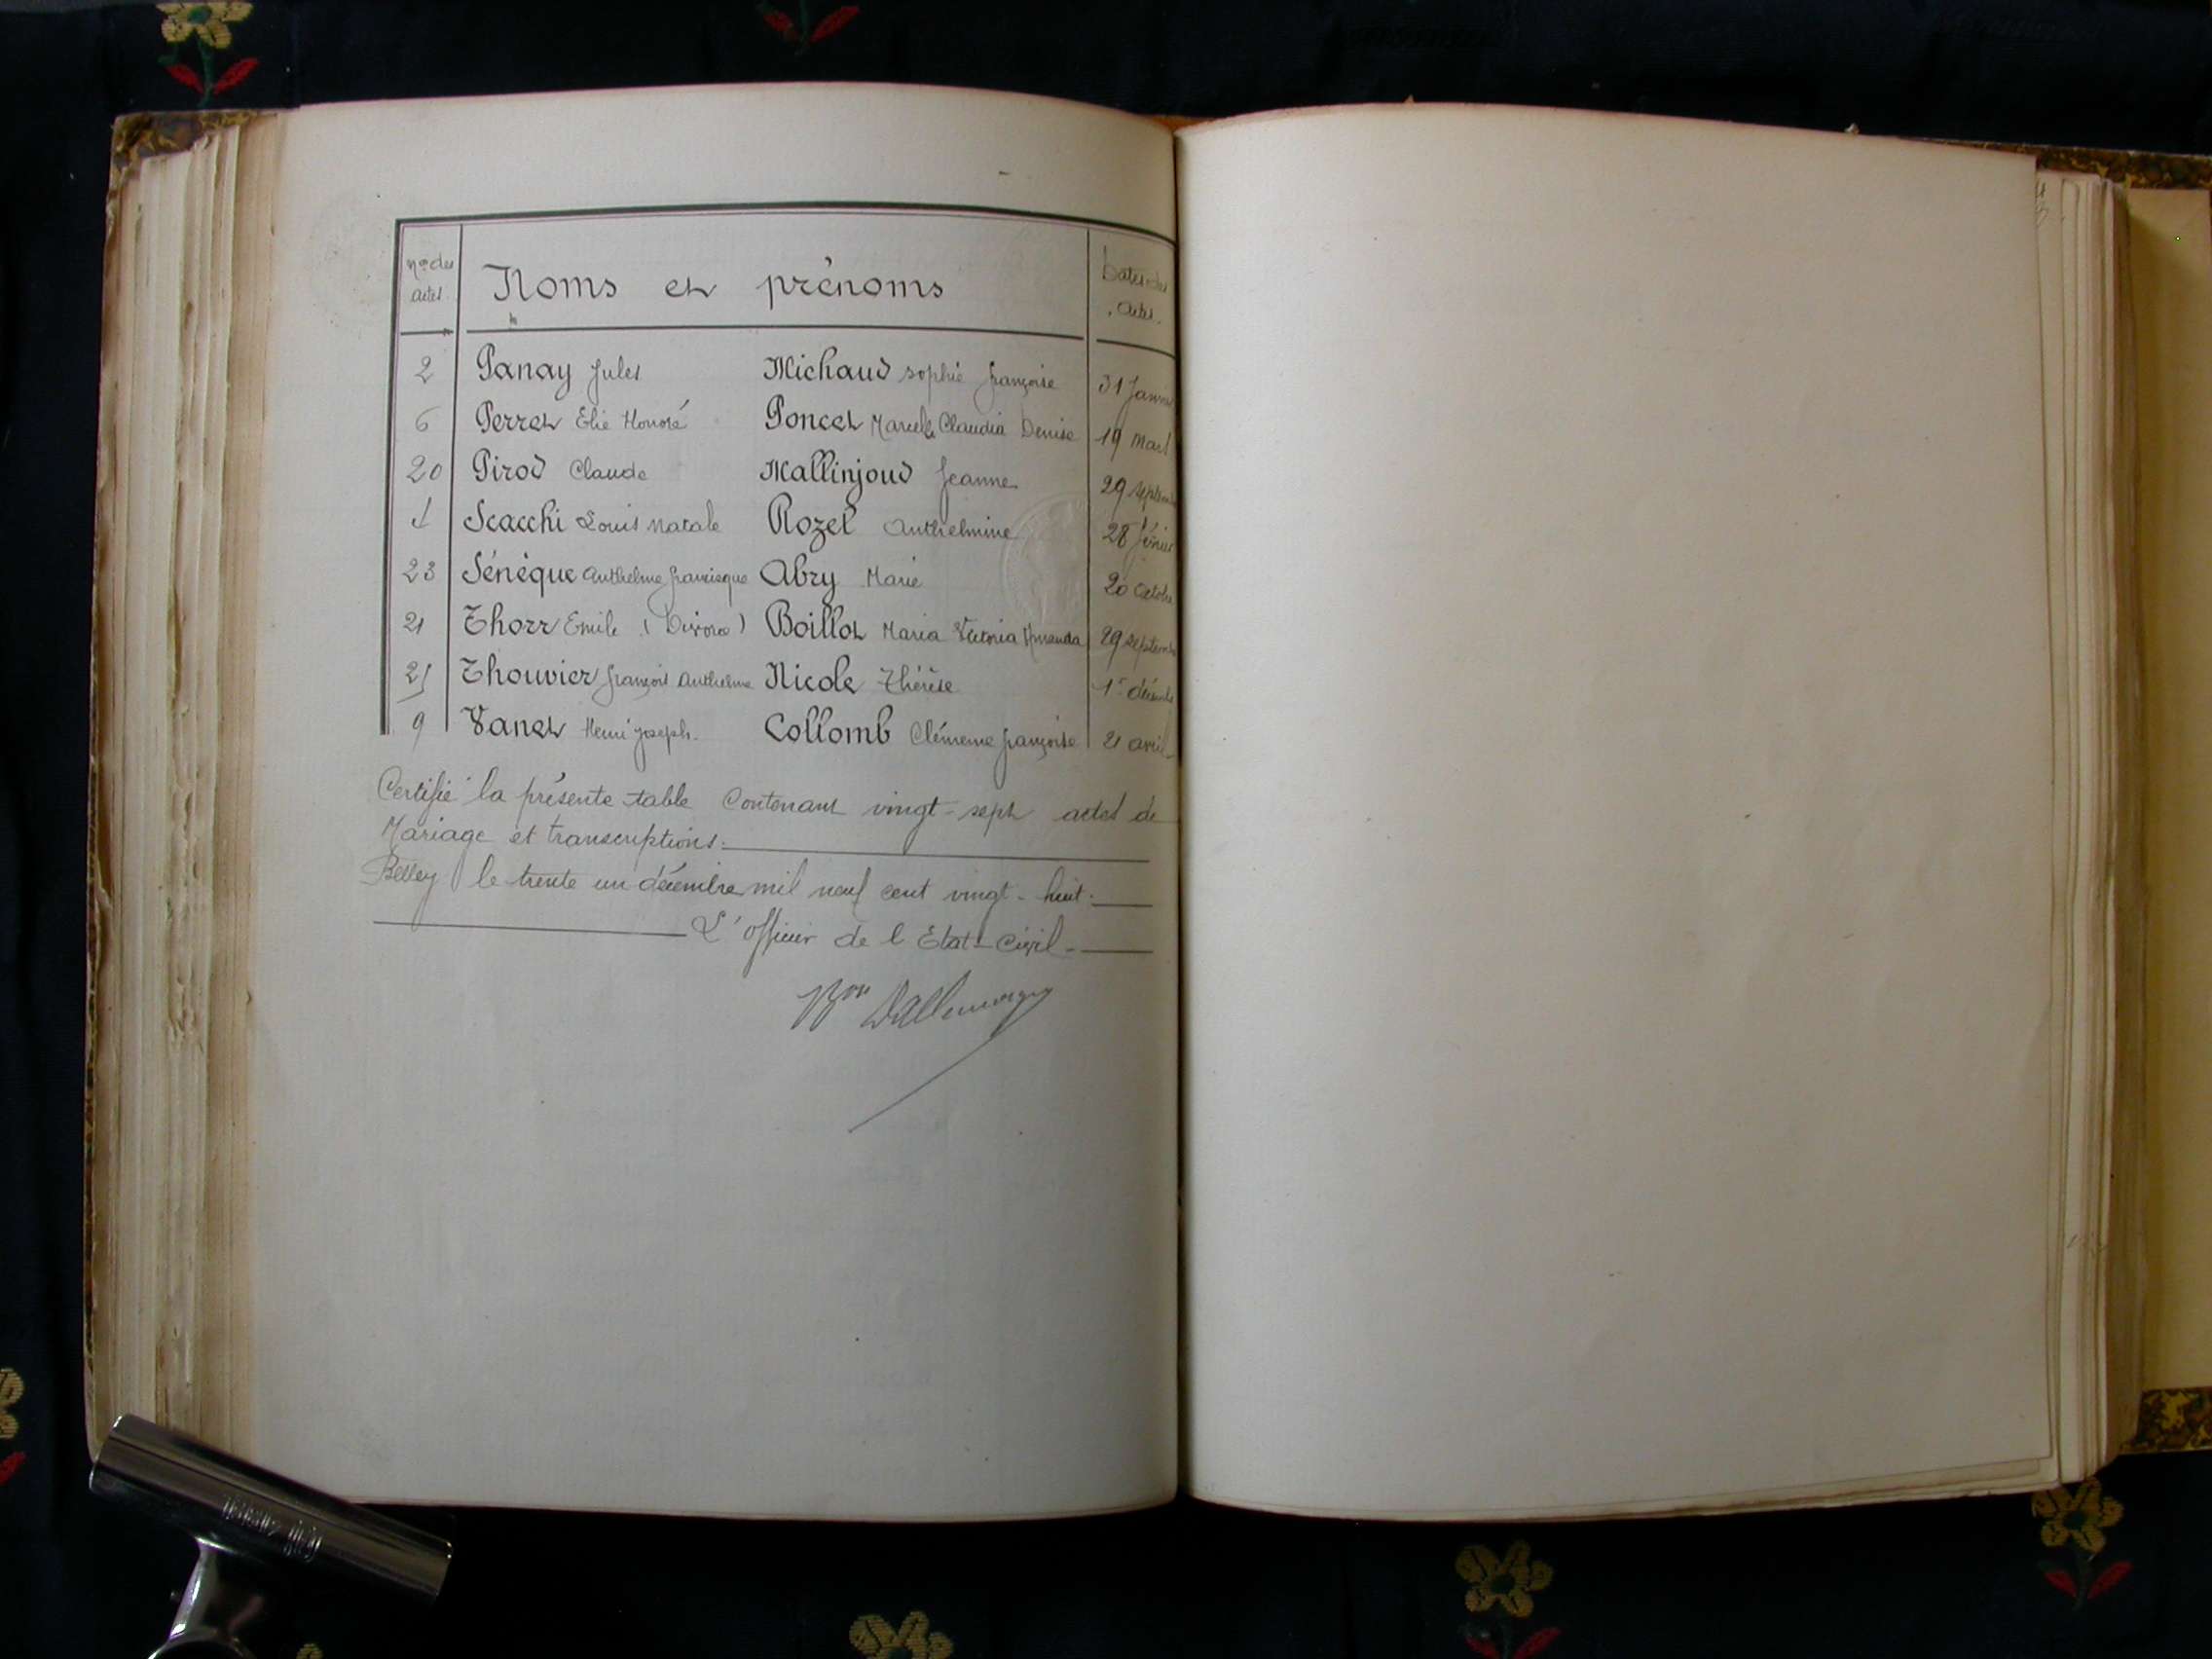 Nos des actes Noms et prénoms Dates des actes
2 Panay Jules Michaud Sophie françoise 31 Janvier
6 Perret Elie Honoré Poncet Marcelle Claudia Denise 19 Mars
20 Pirod Claude Mallinjoud Jeanne 29 septembre
Scacchi Louis Natale Rozet Anthelmine 28 février
23 Sénèque Anthelme francisque Abry Marie 20 Octobre
21 Thorr Emile (Divorcé) Boillot Maria Victoria Amanda 29 septembre
25 Thouvier françois Anthelme Nicole Thérèse 1er décembre
9 Vanet Henri Joseph Collomb Clémence françoise 21 avril
Certifié la présente table Contenant vingt-sept actes de
Mariage et transcriptions.
Belley le trente un décembre mil neuf cent vingt-huit.
L'officier de l Etat-Civil
Bon Dallemagne